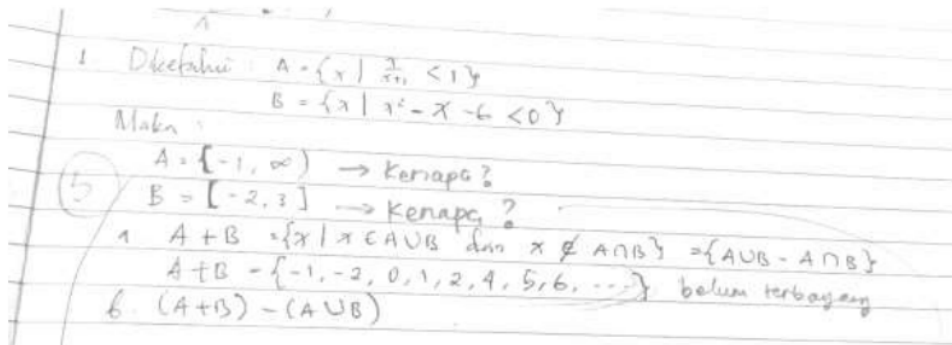 1 Diketahui : A = {x | x/x+1 < 1}
B = {x | x² - x - 6 < 0}
Maka :
A = [-1, ∞) → Kenapa?
5
B = [-2, 3] → Kenapa?
a A + B = {x | x ∈ A∪B dan x ∉ A∩B} = {A∪B - A∩B}
A + B = {-1, -2, 0, 1, 2, 4, 5, 6, ...} belum terbayang
b. (A+B) - (A∪B)